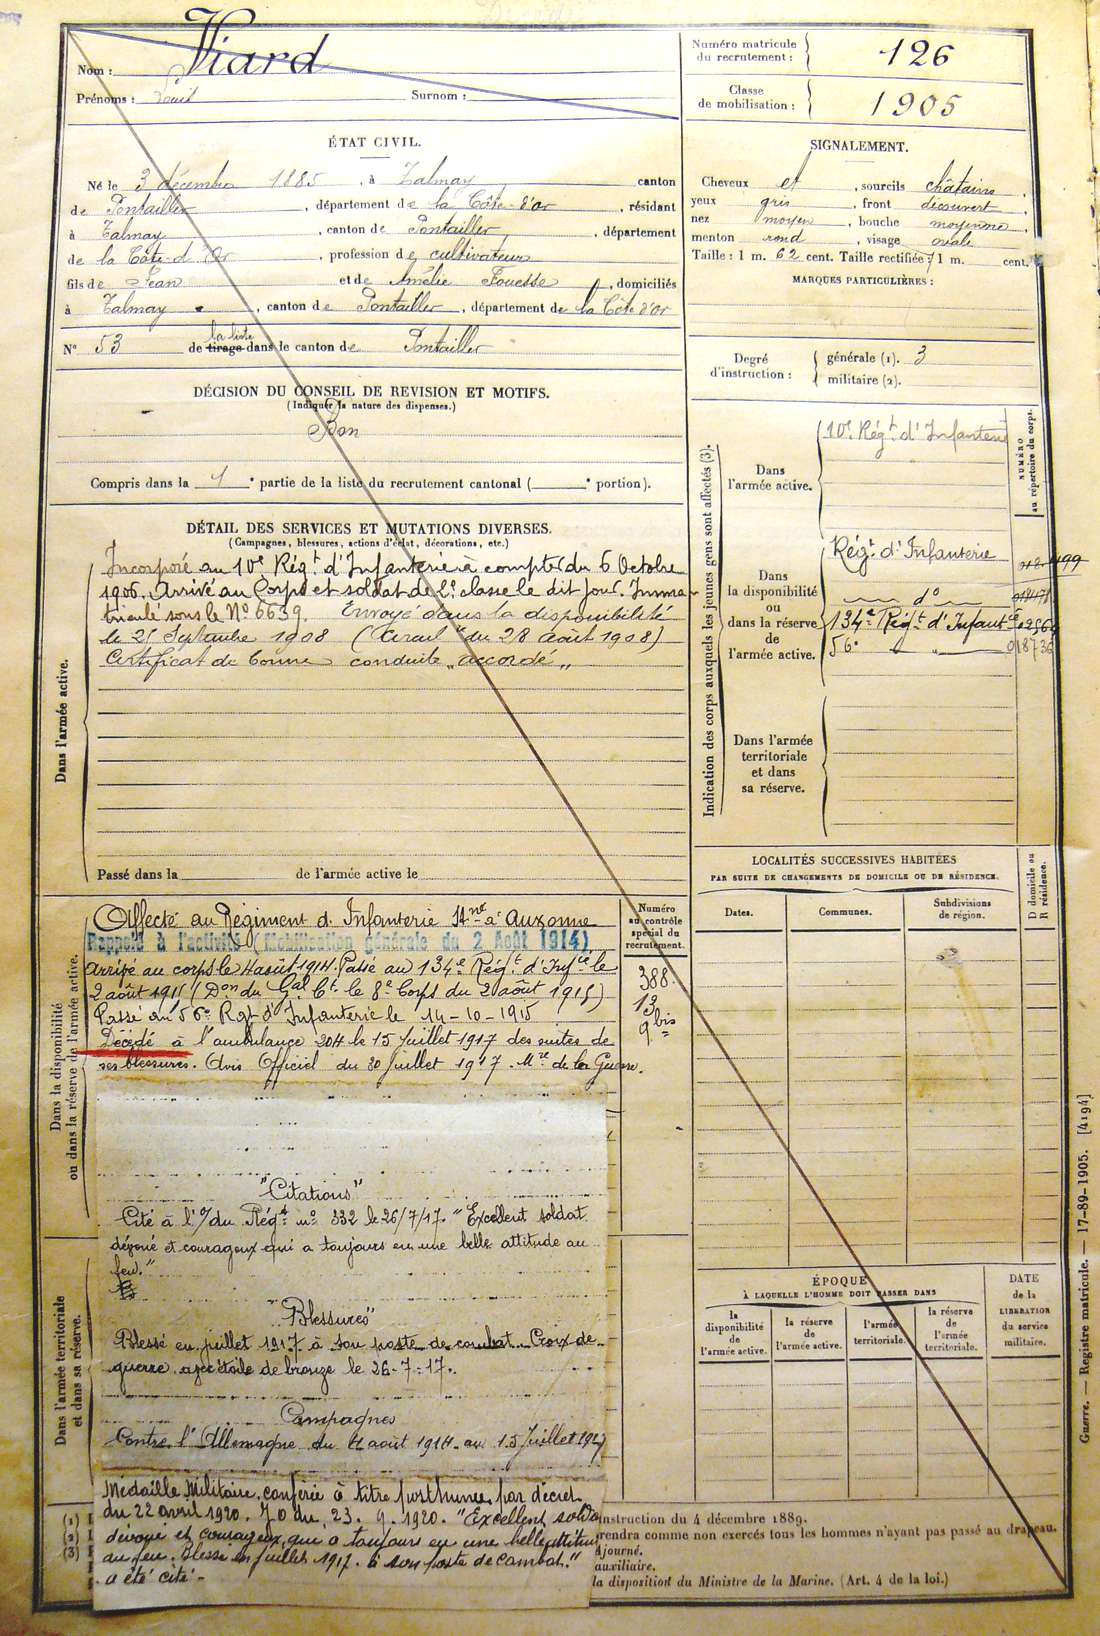 Nom : Viard
Prénoms : Louis Surnom :
Numéro matricule
du recrutement : 126
Classe
de mobilisation : 1905
ÉTAT CIVIL.
Né le 3 décembre 1885, à Talmay canton
de Pontailler, département de la Côte-d'or, résidant
à Talmay, canton de Pontailler, département
de la Côte-d'Or, profession de cultivateur
fils de Jean et de Amélie Fouesse, domiciliés
à Talmay, canton de Pontailler, département de la Côte d'or
N° 53 de tirage la liste dans le canton de Pontailler
SIGNALEMENT.
Cheveux et, sourcils châtains,
yeux gris, front découvert,
nez moyen, bouche moyenne,
menton rond, visage ovale
Taille : 1 m. 62 cent. Taille rectifiée : 1 m. cent.
MARQUES PARTICULIÈRES :
Degré
d'instruction :
générale (1). 3
militaire (2).
DÉCISION DU CONSEIL DE REVISION ET MOTIFS.
(Indiquer la nature des dispenses.)
Bon
Compris dans la 1e partie de la liste du recrutement cantonal ( e portion).
DÉTAIL DES SERVICES ET MUTATIONS DIVERSES.
(Campagnes, blessures, actions d'éclat, décorations, etc.)
Dans l'armée active.
Incorporé au 10e Régt d'Infanterie à compter du 6 Octobre
1906. Arrivé au Corps et soldat de 2e classe le dit jour. Imma-
triculé sous le No 6639. Envoyé dans la disponibilité
le 25 Septembre 1908 ( du 28 Août 1908)
Certificat de bonne conduite „accordé„
Passé dans la de l'armée active le
Indication des corps auxquels les jeunes gens sont affectés (3).
NUMÉRO
au répertoire du corps.
Dans
l'armée active.
10e Régt d'Infanterie
Dans
la disponibilité
ou
dans la réserve
de
l'armée active.
Régt d'Infanterie
do
134e Régt d'Infantie
56e d° „
Dans l'armée
territoriale
et dans
sa réserve.
LOCALITÉS SUCCESSIVES HABITÉES
PAR SUITE DE CHANGEMENTS DE DOMICILE OU DE RÉSIDENCE.
Dates.
Communes.
Subdivisions
de région.
D domicile ou
R résidence.
Dans la disponibilité
ou dans la réserve de l'armée active.
Affecté au Régiment d'Infanterie Stné à Auxonne
Rappelé à l'activité (Mobilisation générale du 2 Août 1914)
Arrivé au corps le 4 août 1914. Passé au 134e Régt d'Infie le
2 août 1915 (Don du Gal Ct le 8e Corps du 2 août 1915)
Passé au 56e Rgt d'Infanterie le 14-10-1915
Décédé à l'ambulance 204 le 15 Juillet 1917 des suites de
ses blessures. Avis Officiel du 30 juillet 1917. Mre de la Guerre.
Numéro
au contrôle
spécial du
recrutement.
388.
13
9bis
"Citations"
Cité à l'o/ du Régt no 332 le 26/7/17. "Excellent soldat
dévoué et courageux qui a toujours eu une belle attitude au
feu."
"Blessures"
Blessé en juillet 1917 à son poste de combat. Croix de
guerre avec étoile de bronze le 26-7-17.
Campagnes
Contre l'Allemagne du 4 août 1914 au 15 Juillet 1917
Dans l'armée territoriale
et dans sa réserve.
Médaille Militaire conférée à titre posthume par décret
du 22 avril 1920. JO du 23. 9. 1920. "Excellent soldat
dévoué et courageux, qui a toujours eu une belle attitude
au feu. Blessé en juillet 1917 à son poste de combat."
a été cité.-
ÉPOQUE
À LAQUELLE L'HOMME DOIT PASSER DANS
la
disponibilité
de
l'armée active.
la réserve
de
l'armée active.
l'armée
territoriale.
la réserve
de
l'armée
territoriale.
DATE
de la
LIBÉRATION
du service
militaire.
(1)
(2)
(3)
instruction du 4 décembre 1889.
rendra comme non exercés tous les hommes n'ayant pas passé au drapeau.
ajourné.
auxiliaire.
la disposition du Ministre de la Marine. (Art. 4 de la loi.)
Guerre. — Registre matricule. — 17-89-1905. [4194]